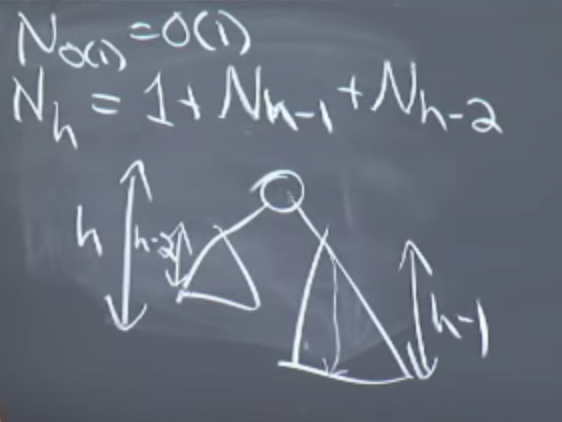 N_{O(1)} = O(1)
N_h = 1 + N_{h-1} + N_{h-2}
h
h-2
h-1